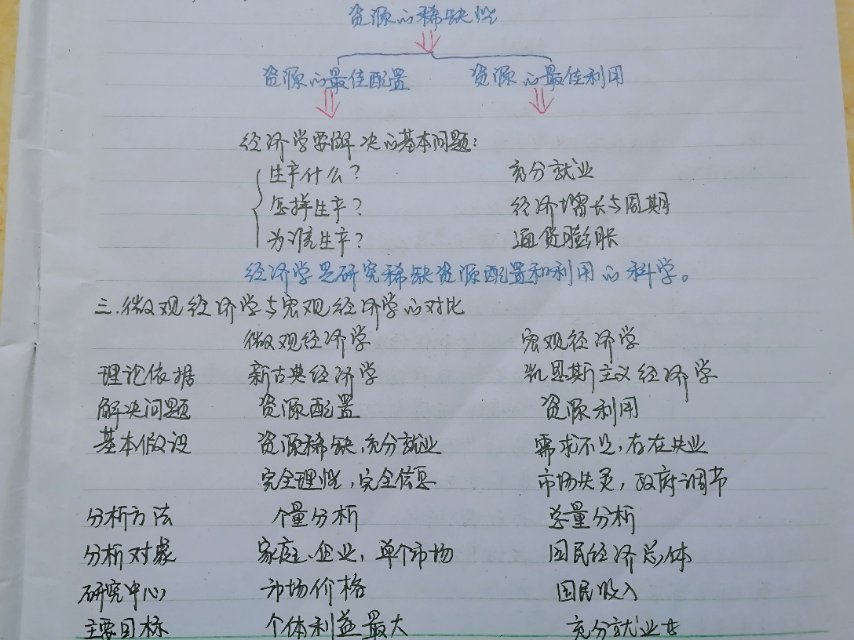 资源的稀缺性
资源的最佳配置 资源的最佳利用
经济学要解决的基本问题:
生产什么? 充分就业
怎样生产? 经济增长与周期
为谁生产? 通货膨胀
经济学是研究稀缺资源配置和利用的科学。
三.微观经济学与宏观经济学的对比
微观经济学 宏观经济学
理论依据 新古典经济学 凯恩斯主义经济学
解决问题 资源配置 资源利用
基本假设 资源稀缺,充分就业 需求不足,存在失业
完全理性,完全信息 市场失灵,政府调节
分析方法 个量分析 总量分析
分析对象 家庭、企业、单个市场 国民经济总体
研究中心 市场价格 国民收入
主要目标 个体利益最大 充分就业